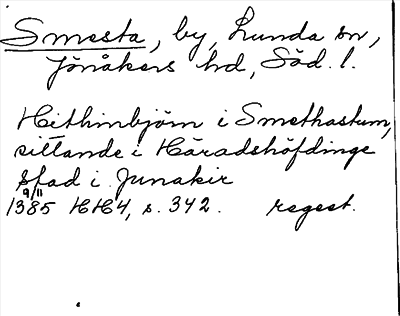 Smesta, by, Lunda sn,
Jönåkers hd, Söd. l.
Hithinbjörn i Smethastum,
sittande i Häradshöfdinge
stad i Junakir
9/11
1385 HH4, s. 342. regest.